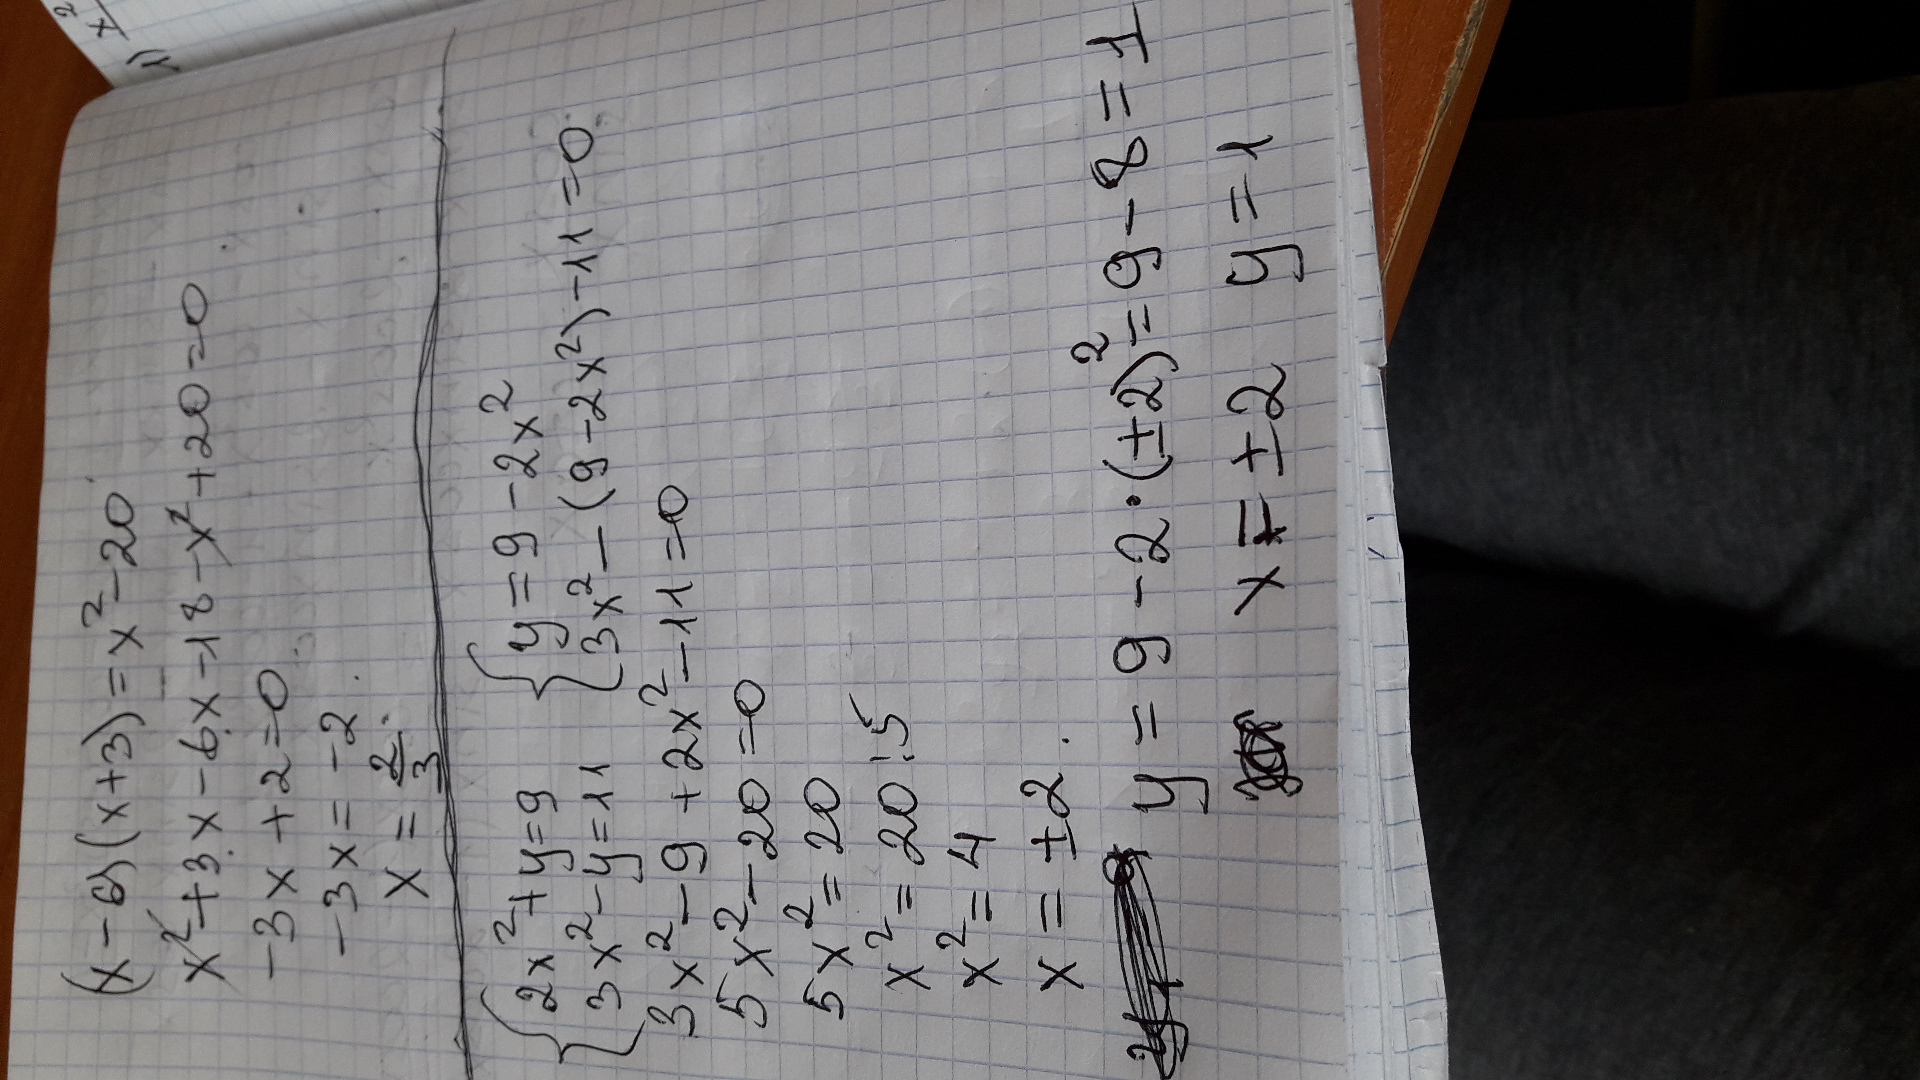 (x-6)(x+3)=x²-20
x²+3x-6x-18-x²+20=0
-3x+2=0
-3x=-2
x=2/3
{2x²+y=9 {y=9-2x²
3x²-y=11 3x²-(9-2x²)-11=0
3x²-9+2x²-11=0
5x²-20=0
5x²=20
x²=20:5
x²=4
x=±2.
y=9-2·(±2)²=9-8=1
x=±2 y=1
1) x²